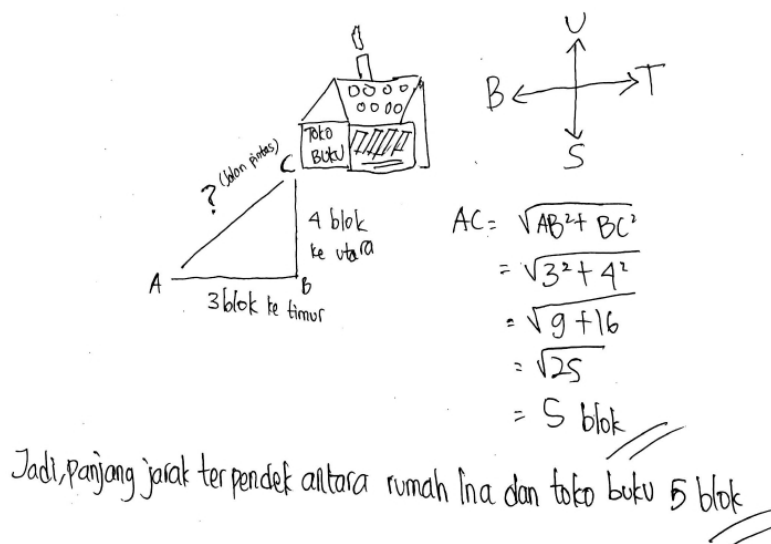 U
B T
S
Toko
Buku
C
? (Jalan pintas)
4 blok
ke utara
A B
3 blok ke timur
AC = √AB² + BC²
= √3² + 4²
= √9 + 16
= √25
= 5 blok
Jadi, panjang jarak terpendek antara rumah Ina dan toko buku 5 blok